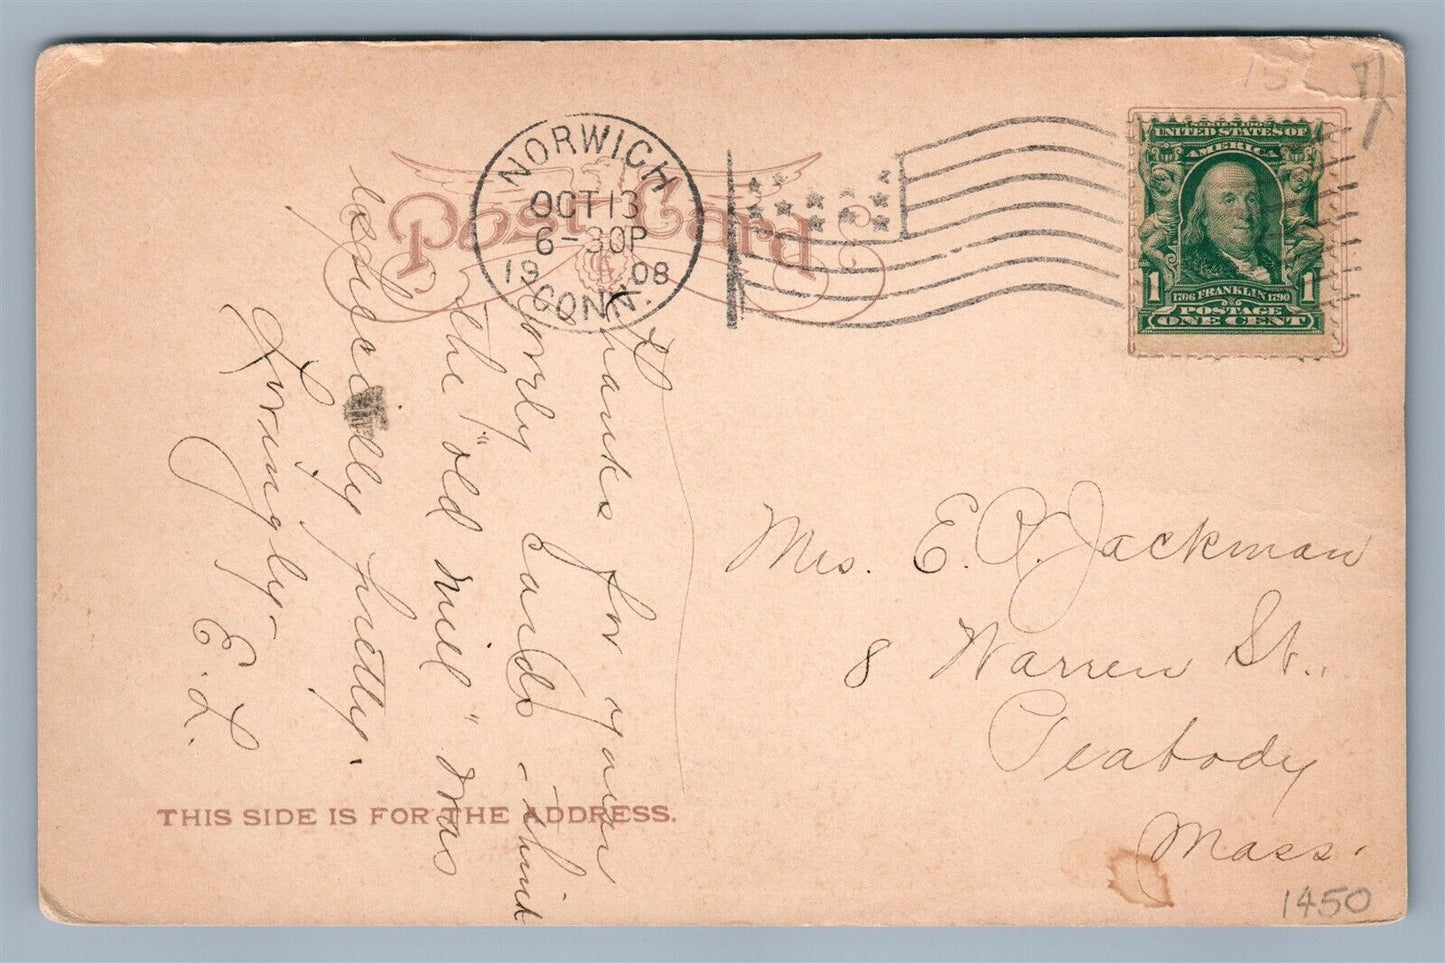 Post Card
NORWICH
OCT 13
6-30P
1908
CONN.
SERIES 1902
UNITED STATES OF
AMERICA
1 1
1706 FRANKLIN 1790
POSTAGE
ONE CENT
Thanks for your
lovely cards - think
the "old mill" was
especially pretty.
Lovingly-
E. L.
Mrs. E. R. Jackman
8 Warren St.,
Peabody
Mass.
THIS SIDE IS FOR THE ADDRESS.
1450